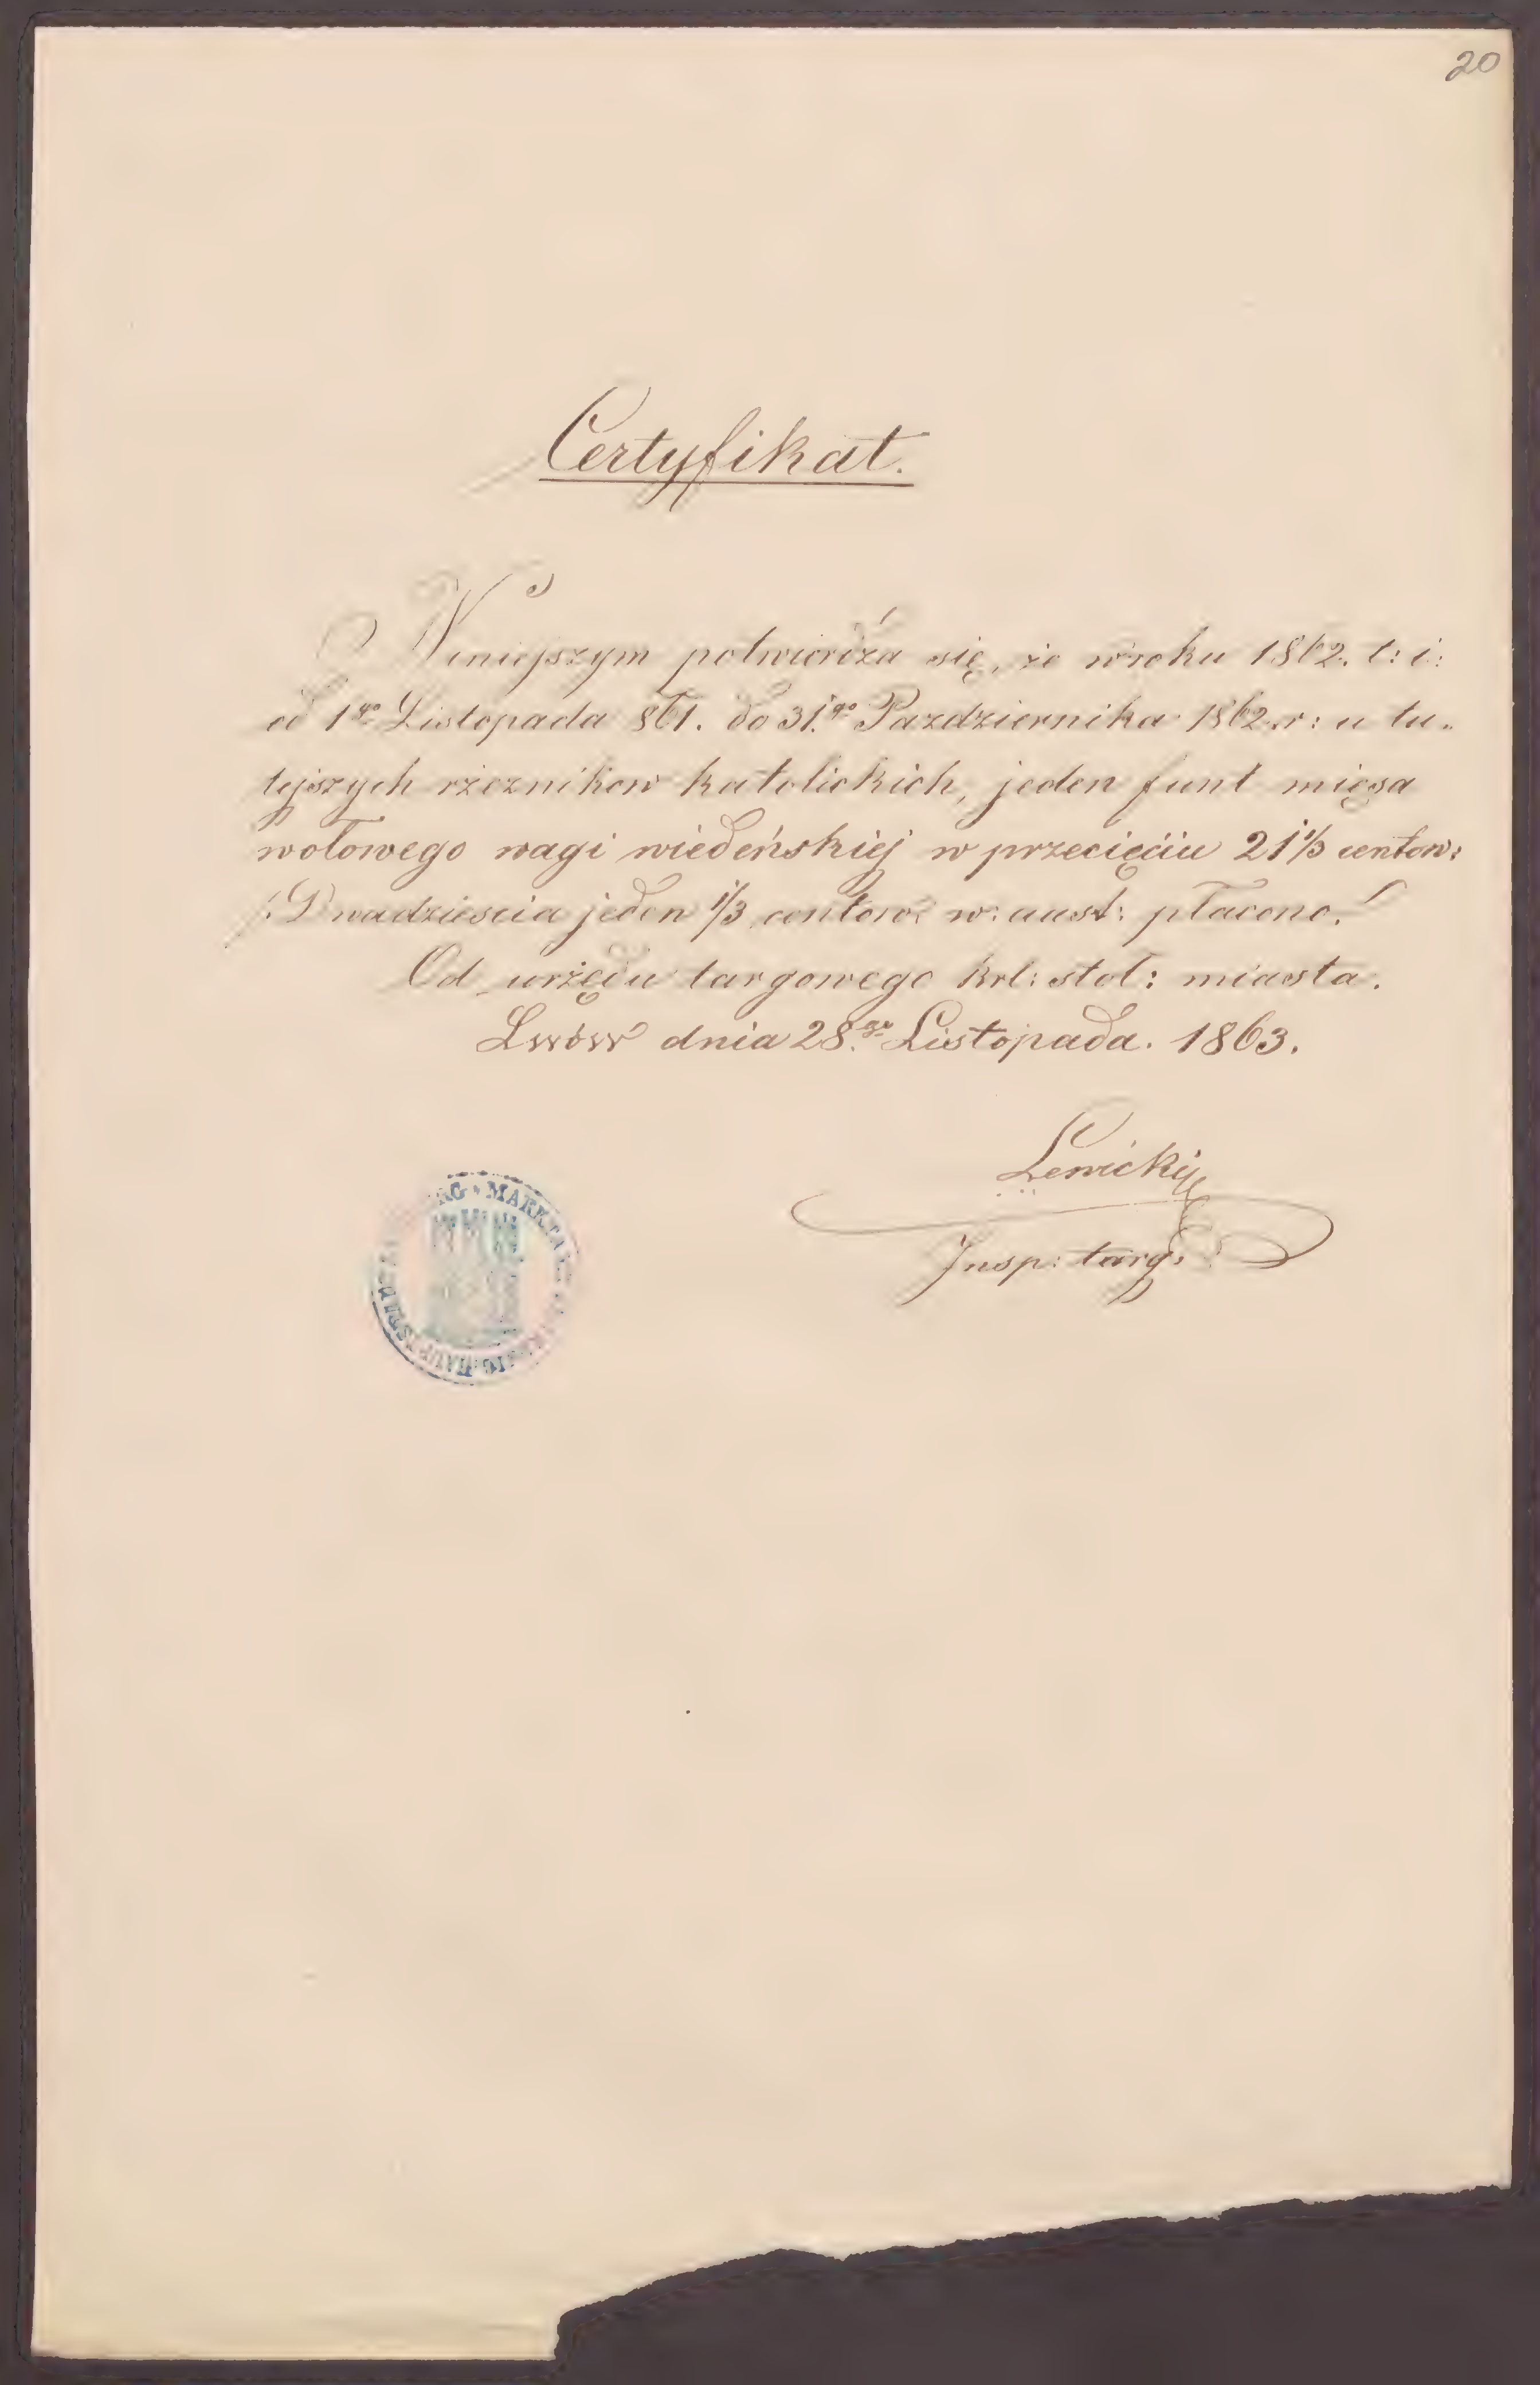 20
Certyfikat.
Niniejszym potwierdza się, że w roku 1862. t: i:
od 1go Listopada 861. do 31.go Pazdziernika 1862. r: u tu-
tejszych rzeznikow katolickich, jeden funt mięsa
wołowego wagi wiedeńskiej w przecięciu 21 1/3 centow:
/: Dwadziescia jeden 1/3 centow: w: aust: płacono.
Od urzędu targowego krl: stoł: miasta.
Lwów dnia 28.go Listopada. 1863.
Lewicki
Insp: targ:
MARKTA
HAUPTSTADT